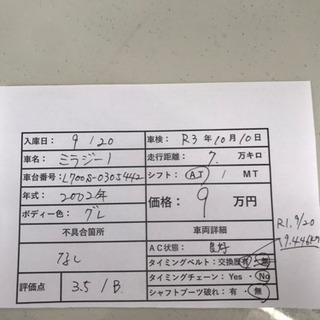 入庫日: 9/20 車検: R3年10月10日
車名: ミラジーノ 走行距離: 7. 万キロ
車台番号: L700S-0305442 シフト: AT / MT
年式: 2002年 価格: 9 万円
ボディー色: グレ
R1.9/20
9.446km
不具合箇所 車両詳細
なし AC状態: 良好
タイミングベルト: 交換歴 有・無
タイミングチェーン: Yes・No
評価点 3.5/B. シャフトブーツ破れ: 有・無